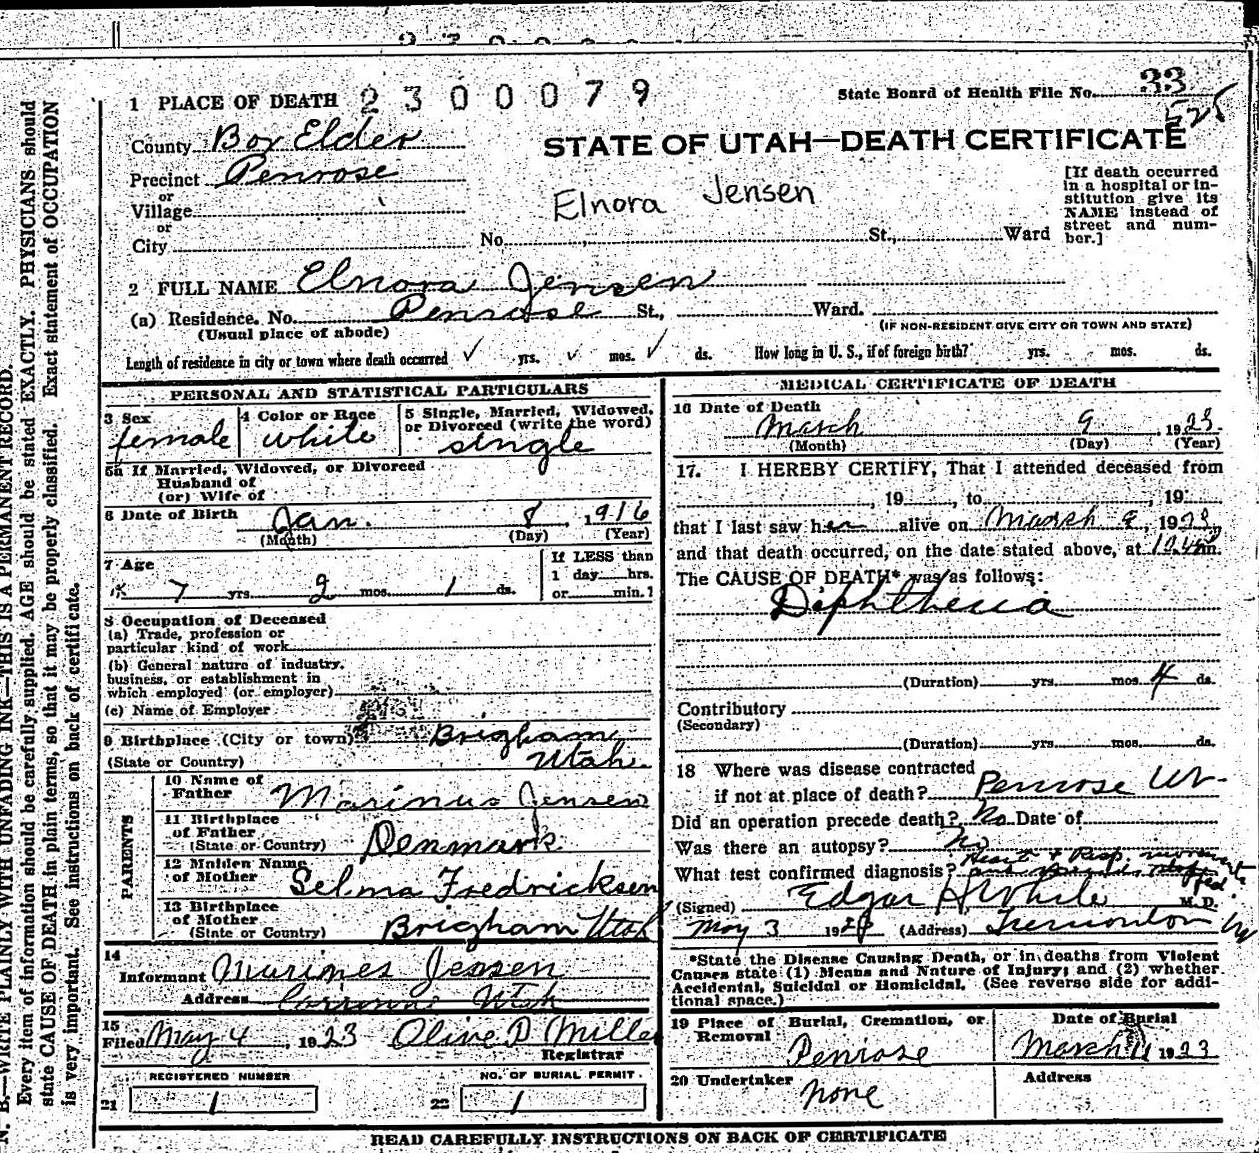 33
1 PLACE OF DEATH 2300079 State Board of Health File No. 525
County Box Elder STATE OF UTAH—DEATH CERTIFICATE
Precinct Penrose
or
Village
or
City No. St., Ward
Elnora Jensen
[If death occurred
in a hospital or in-
stitution give its
NAME instead of
street and num-
ber.]
2 FULL NAME Elnora Jensen
(a) Residence. No. Penrose St., Ward.
(Usual place of abode) (IF NON-RESIDENT GIVE CITY OR TOWN AND STATE)
Length of residence in city or town where death occurred ✓ yrs. ✓ mos. ✓ ds. How long in U. S., if of foreign birth? yrs. mos. ds.
PERSONAL AND STATISTICAL PARTICULARS
3 Sex 4 Color or Race 5 Single, Married, Widowed,
or Divorced (write the word)
female white single
5a If Married, Widowed, or Divorced
Husband of
(or) Wife of
6 Date of Birth Jan. 8, 1916
(Month) (Day) (Year)
7 Age If LESS than
1 day hrs.
7 yrs. 2 mos. 1 ds. or min.?
8 Occupation of Deceased
(a) Trade, profession or
particular kind of work
(b) General nature of industry,
business, or establishment in
which employed (or employer)
(c) Name of Employer
9 Birthplace (City or town) Brigham
(State or Country) Utah
PARENTS
10 Name of
Father Marinus Jensen
11 Birthplace
of Father
(State or Country) Denmark
12 Maiden Name
of Mother Selma Fredricksen
13 Birthplace
of Mother
(State or Country) Brigham Utah
14
Informant Marines Jensen
Address Corinne Utah
15
Filed May 4, 1923 Olive D Miller
Registrar
REGISTERED NUMBER NO. OF BURIAL PERMIT.
21 1 22 1
MEDICAL CERTIFICATE OF DEATH
16 Date of Death
March 9, 1923.
(Month) (Day) (Year)
17. I HEREBY CERTIFY, That I attended deceased from
, 19 , to , 19
that I last saw her alive on March 9, 1923,
and that death occurred, on the date stated above, at m.
The CAUSE OF DEATH* was as follows:
Diphtheria
(Duration) yrs. mos. 4 ds.
Contributory
(Secondary)
(Duration) yrs. mos. ds.
18 Where was disease contracted
if not at place of death? Penrose Ut.
Did an operation precede death? No Date of
Was there an autopsy? No
What test confirmed diagnosis? Heart & Resp. movements stopped.
(Signed) Edgar H White M.D.
May 3 192 (Address) Tremonton Ut
*State the Disease Causing Death, or in deaths from Violent
Causes state (1) Means and Nature of Injury; and (2) whether
Accidental, Suicidal or Homicidal. (See reverse side for addi-
tional space.)
19 Place of Burial, Cremation, or
Removal Date of Burial
Penrose March 11 1923
20 Undertaker Address
none
READ CAREFULLY INSTRUCTIONS ON BACK OF CERTIFICATE
N. B.—WRITE PLAINLY WITH UNFADING INK—THIS IS A PERMANENT RECORD.
Every item of information should be carefully supplied. AGE should be stated EXACTLY. PHYSICIANS should
state CAUSE OF DEATH in plain terms, so that it may be properly classified. Exact statement of OCCUPATION
is very important. See instructions on back of certificate.